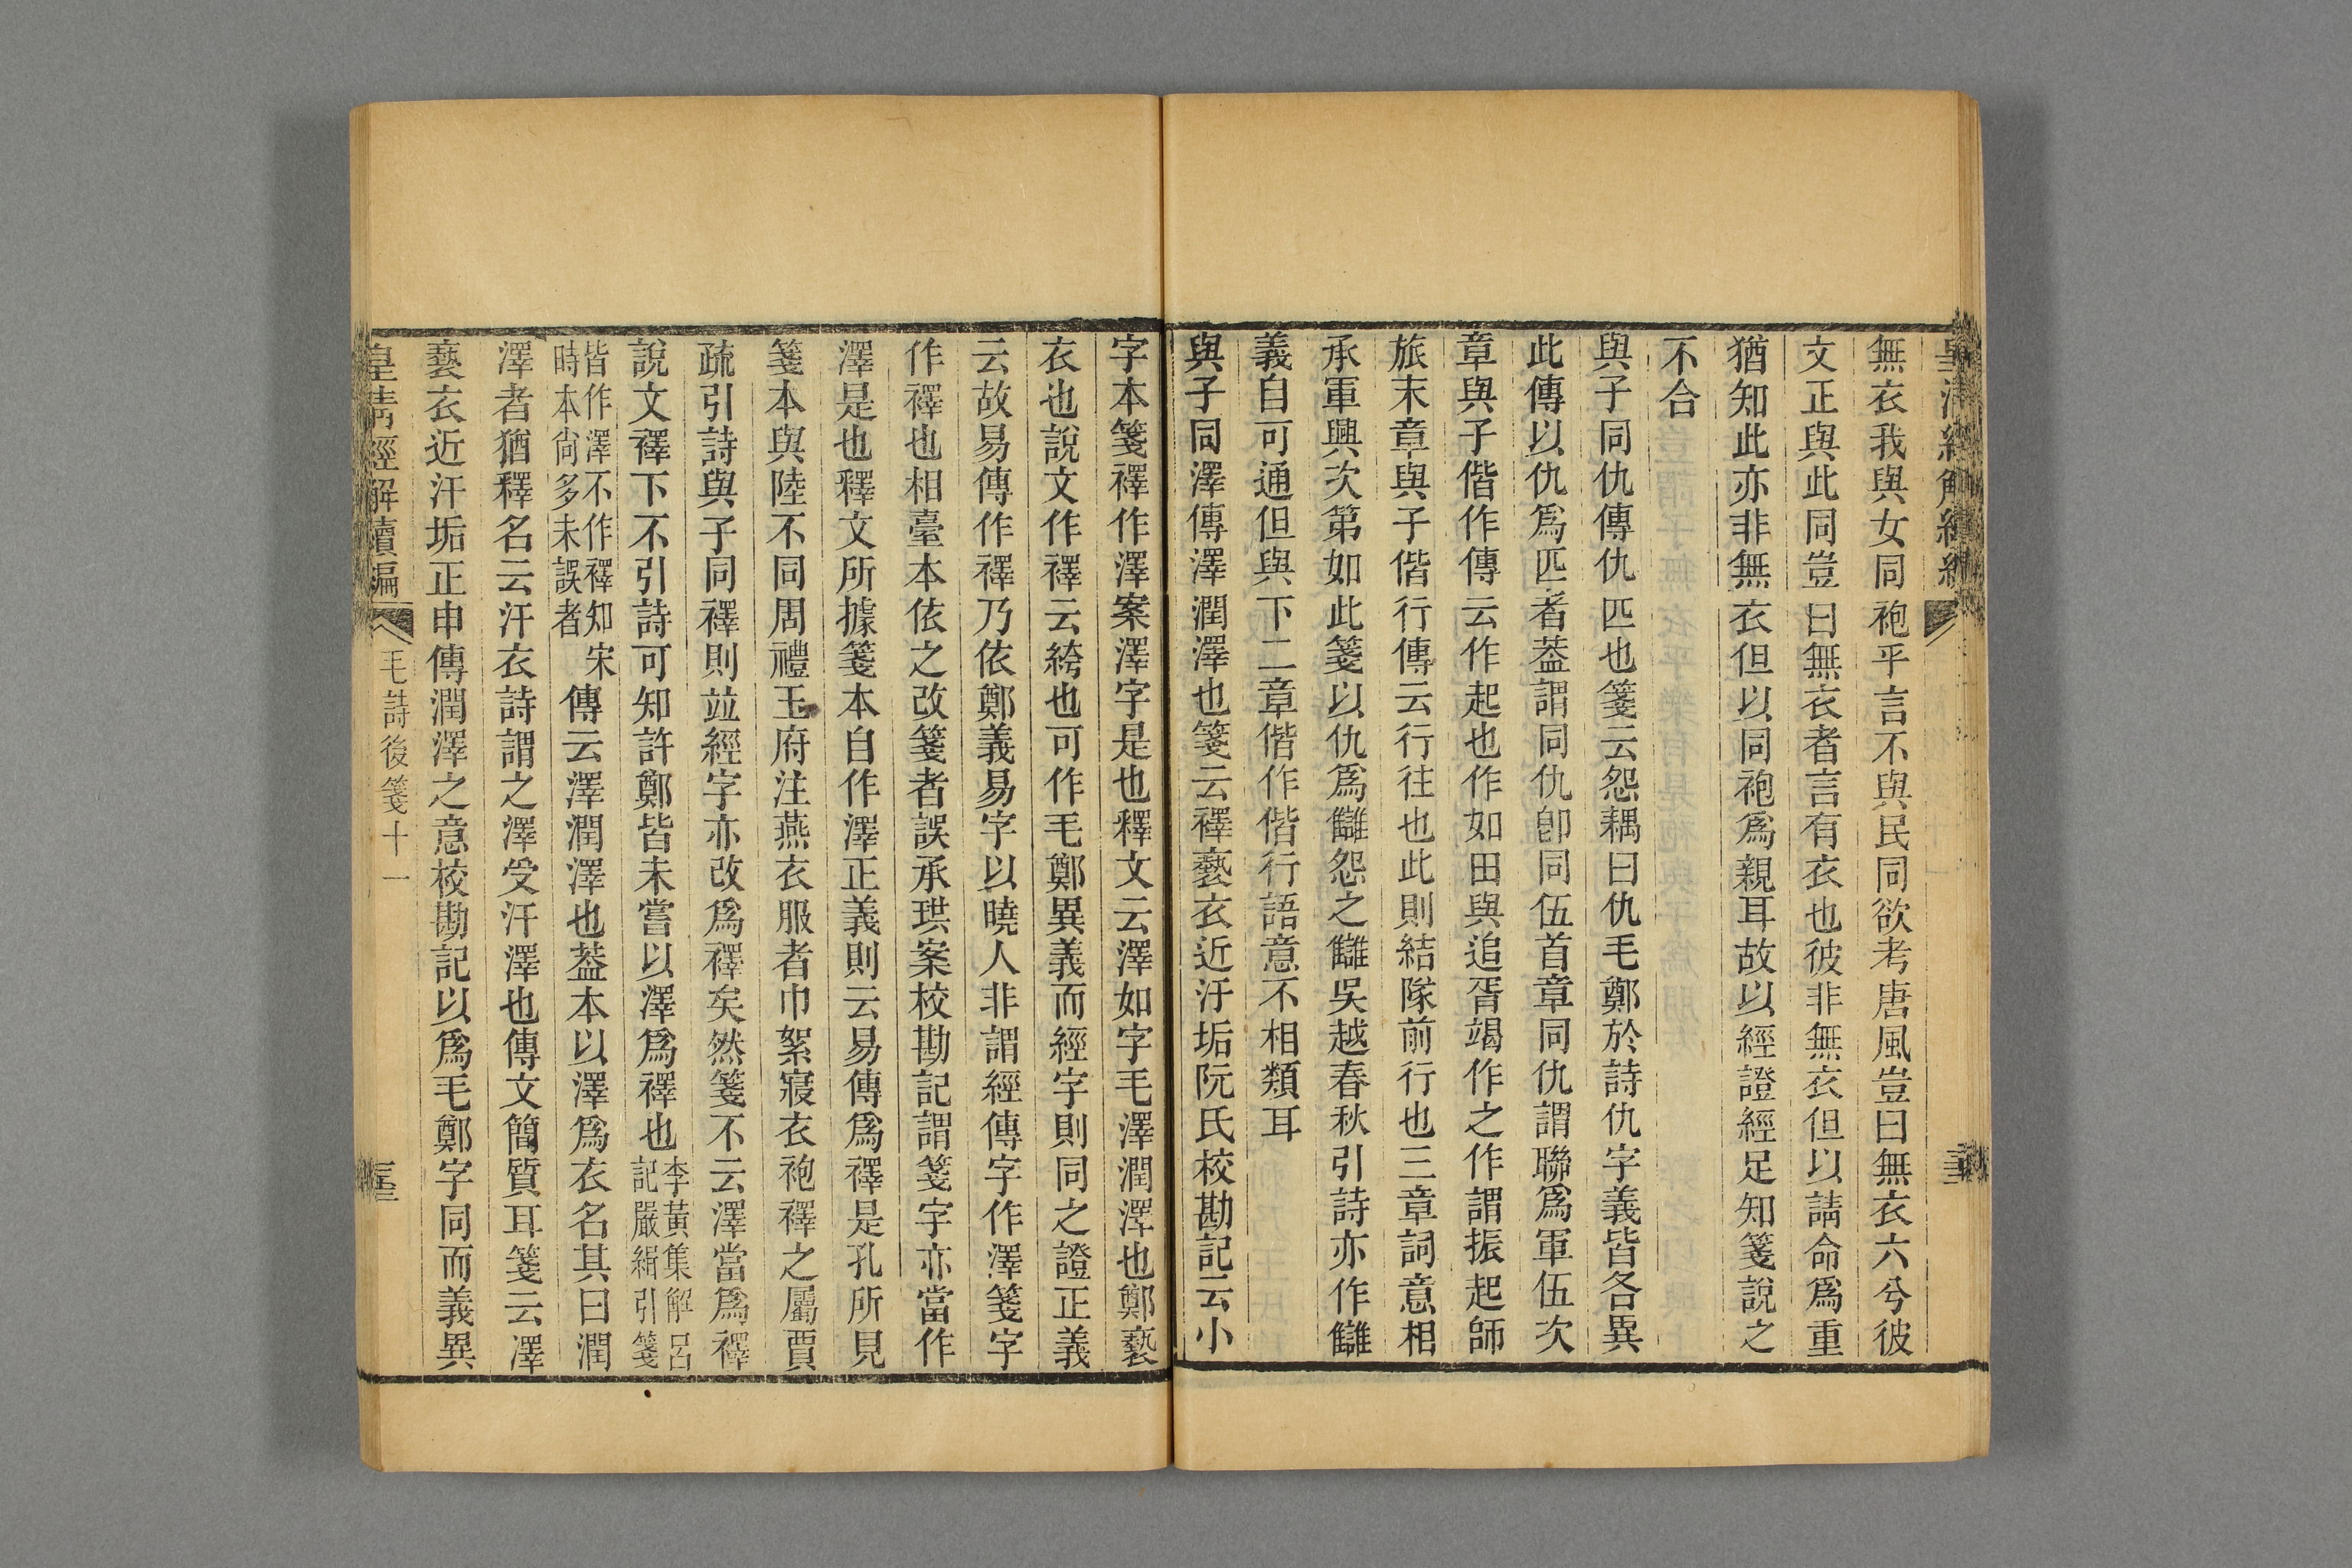 無衣我與女同袍乎言不與民同欲考唐風豈曰無衣六兮彼
文正與此同豈曰無衣者言有衣也彼非無衣但以請命爲重
猶知此亦非無衣但以同袍爲親耳故以經證經足知箋說之
不合
與子同仇傳仇匹也箋云怨耦曰仇毛鄭於詩仇字義皆各異
此傳以仇爲匹者葢謂同仇卽同伍首章同仇謂聯爲軍伍次
章與子偕作傳云作起也作如田與追胥竭作之作謂振起師
旅末章與子偕行傳云行往也此則結隊前行也三章詞意相
承軍興次第如此箋以仇爲讎怨之讎吳越春秋引詩亦作讎
義自可通但與下二章偕作偕行語意不相類耳
與子同澤傳澤潤澤也箋云襗褻衣近汙垢阮氏校勘記云小
字本箋襗作澤案澤字是也釋文云澤如字毛澤潤澤也鄭褻
衣也說文作襗云絝也可作毛鄭異義而經字則同之證正義
云故易傳作襗乃依鄭義易字以曉人非謂經傳字作澤箋字
作襗也相臺本依之改箋者誤承珙案校勘記謂箋字亦當作
澤是也釋文所據箋本自作澤正義則云易傳爲襗是孔所見
箋本與陸不同周禮玉府注燕衣服者巾絮寢衣袍襗之屬賈
疏引詩與子同襗則竝經字亦改爲襗矣然箋不云澤當爲襗
說文襗下不引詩可知許鄭皆未嘗以澤爲襗也李黃集解呂
記嚴緝引箋
皆作澤不作襗知宋
時本尙多未誤者傳云澤潤澤也葢本以澤爲衣名其曰潤
澤者猶釋名云汗衣詩謂之澤受汗澤也傳文簡質耳箋云澤
褻衣近汗垢正申傳潤澤之意校勘記以爲毛鄭字同而義異
皇淸經解續編
毛詩後箋十一